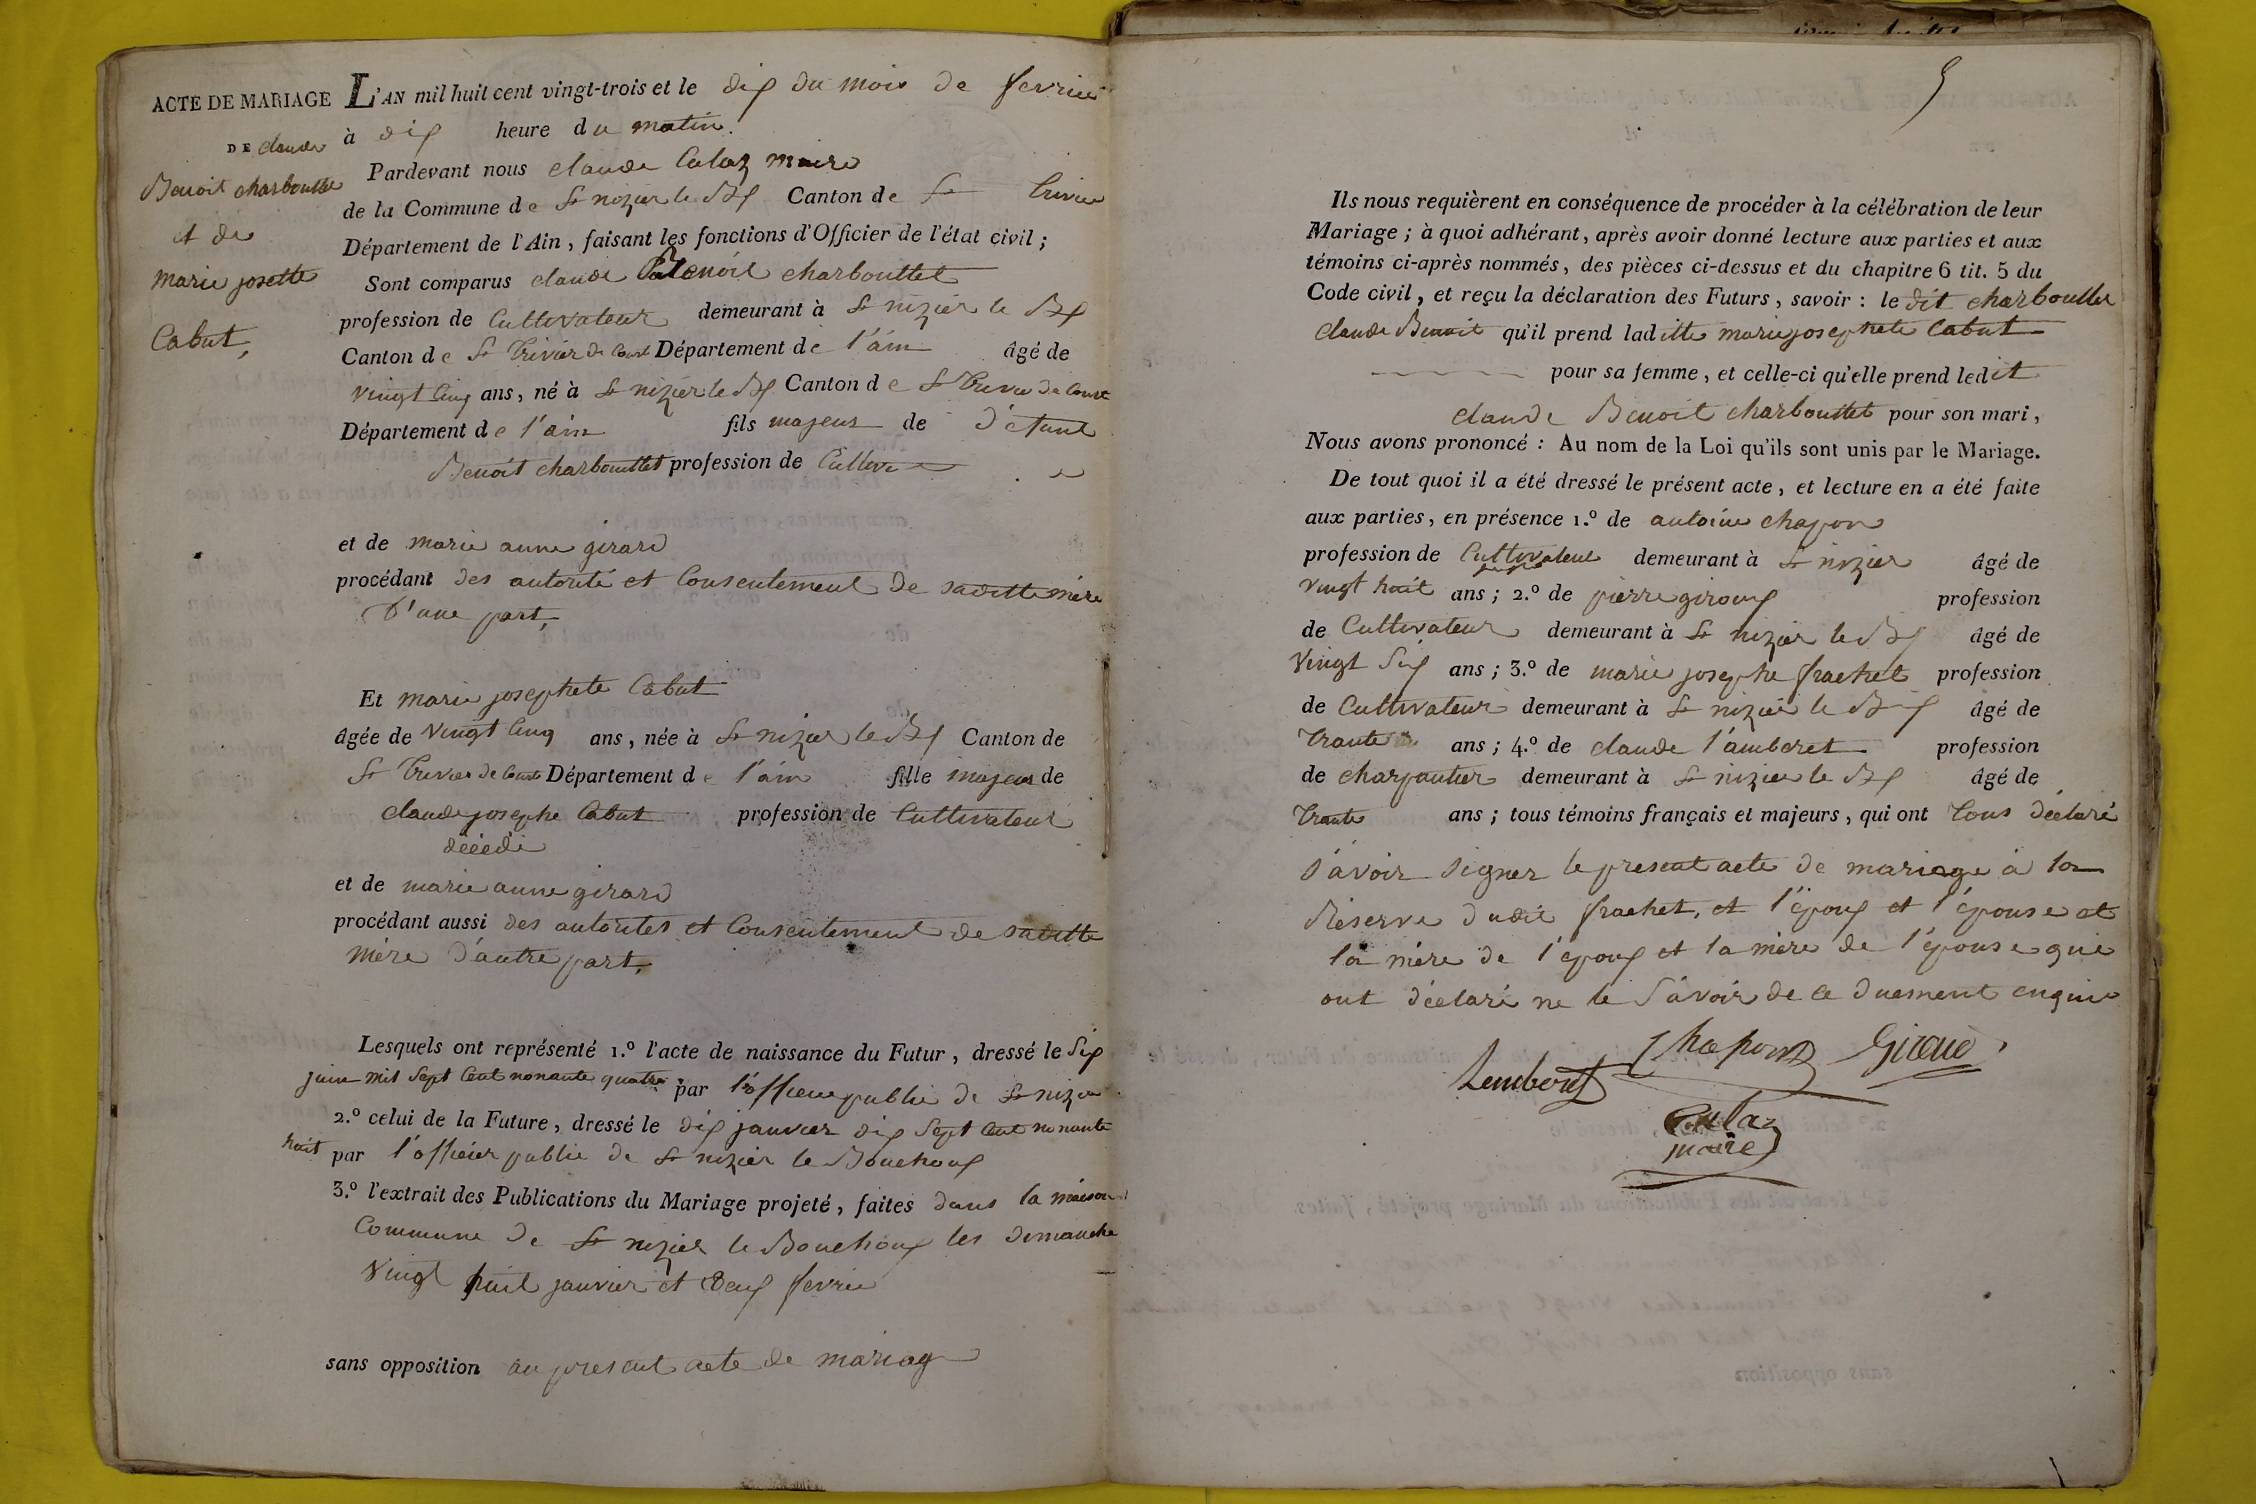 ACTE DE MARIAGE
DE claude
Benoit charbouttet
et de
marie josette
Cabut,
L'AN mil huit cent vingt-trois et le dix du mois de fevrier
à dix heure du matin.
Pardevant nous claude Calaz maire
de la Commune de St nizier le Bx Canton de St Trivier
Département de l'Ain, faisant les fonctions d'Officier de l'état civil;
Sont comparus claude Benoit charbouttet
profession de Cultivateur demeurant à St nizier le Bx
Canton de St Trivier de Court Département de l'ain âgé de
vingt Cinq ans, né à St nizier le Bx Canton de St Trivier de Court
Département de l'ain fils majeur de défunt
Benoit charbouttet profession de
et de marie anne girard
procédant des autorité et Consentement de sadette mère
D'une part,
Et marie josephete Cabut
âgée de Vingt Cinq ans, née à St nizier le Bx Canton de
St Trivier de Court Département de l'ain fille majeur de
claude josephe Cabut profession de Cultivateur
décédé
et de marie anne girard
procédant aussi des autorités et Consentement de sadette
mère D'autre part,
Lesquels ont représenté 1.º l'acte de naissance du Futur, dressé le Six
juin mil Sept Cent nonante quatre par l'officier public de St nizier
2.º celui de la Future, dressé le dix janvier dix Sept Cent nonante
huit par l'officier public de St nizier le Bouchoux
3.º l'extrait des Publications du Mariage projeté, faites dans la maison
Commune de St nizier le Bouchoux les dimanche
Vingt huit janvier et deux fevrier
sans opposition au present acte de mariage
5
Ils nous requièrent en conséquence de procéder à la célébration de leur
Mariage; à quoi adhérant, après avoir donné lecture aux parties et aux
témoins ci-après nommés, des pièces ci-dessus et du chapitre 6 tit. 5 du
Code civil, et reçu la déclaration des Futurs, savoir: le dit charbouttet
claude Benoit qu'il prend laditte marie josephete Cabut
pour sa femme, et celle-ci qu'elle prend ledit
claude Benoit charbouttet pour son mari,
Nous avons prononcé: Au nom de la Loi qu'ils sont unis par le Mariage.
De tout quoi il a été dressé le présent acte, et lecture en a été faite
aux parties, en présence 1.º de antoine chapon
profession de Cultivateur demeurant à St nizier âgé de
vingt huit ans; 2.º de pierre giroux profession
de Cultivateur demeurant à St nizier le Bx âgé de
Vingt Six ans; 3.º de marie josephe frachet profession
de Cultivateur demeurant à St nizier le Bx âgé de
Trante ans; 4.º de claude l'amberet profession
de charpantier demeurant à St nizier le Bx âgé de
Trante ans; tous témoins français et majeurs, qui ont Tous déclaré
s'avoir signer le present acte de mariage à la
Réserve dudit frachet, et l'époux et l'épouse et
la mère de l'époux et la mère de l'épouse qui
ont déclaré ne le S'avoir de ce duement enquis
Lemberet Chapon Giroud
Calaz
maire